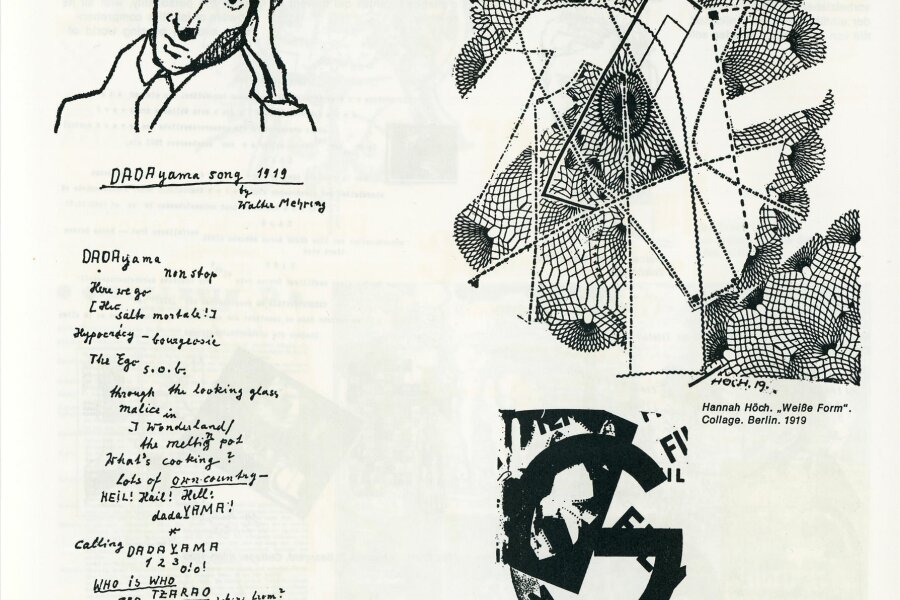 DADAyama song 1919
by
Walter Mehring
DADAyama
non stop
Here we go
[Hic
salto mortale!]
Hypocrácy – bourgeosie
The Ego s.o.b.
through the looking glass
malice in
I Wonderland/
the meltign pot
What's cooking?
Lots of own country –
HEIL! Hail! Hell!
dadaYAMA!
*
Calling DADAYAMA
1 2 3 0!0!
WHO iS WHO
TZARAO where from?
HÖCH. 19.
Hannah Höch. „Weiße Form".
Collage. Berlin. 1919
FI
IL
G